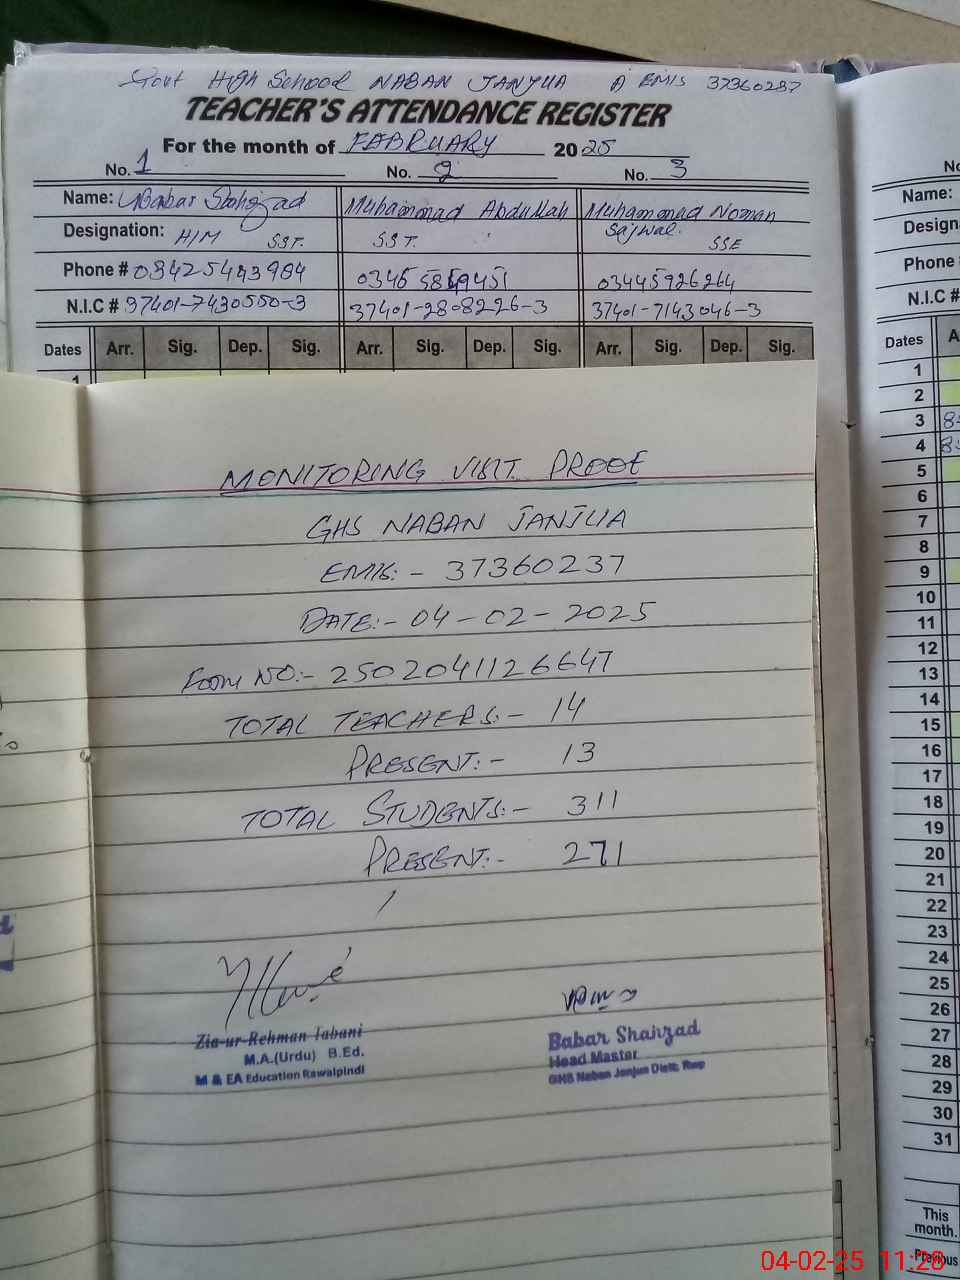 Govt High School NABAN JANJUA A EMIS 37360237
TEACHER'S ATTENDANCE REGISTER
For the month of FABRUARY 2025
No. 1 No. 2 No. 3
Name: Babar Shahzad Muhammad Abdullah Muhammad Noman
Sajwal.
Designation: H/M SST. SST. SSE
Phone # 03425443984 03455849451 03445926264
N.I.C # 37401-7430550-3 37401-2808226-3 37401-7143046-3
Dates Arr. Sig. Dep. Sig. Arr. Sig. Dep. Sig. Arr. Sig. Dep. Sig.
1
MONITORING VISIT PROOF
GHS NABAN JANJUA
EMIS:- 37360237
DATE:- 04-02-2025
FORM NO:- 2502041126647
TOTAL TEACHERS:- 14
PRESENT:- 13
TOTAL STUDENTS:- 311
PRESENT:- 271
Zia-ur-Rehman Tabani
M.A.(Urdu) B.Ed.
M & EA Education Rawalpindi
Babar Shahzad
Head Master
GHS Naban Janjua Distt. Rwp
No
Name:
Design
Phone
N.I.C #
Dates A
1
2
3 8
4 8
5
6
7
8
9
10
11
12
13
14
15
16
17
18
19
20
21
22
23
24
25
26
27
28
29
30
31
This
month.
Previous
04-02-25 11:28